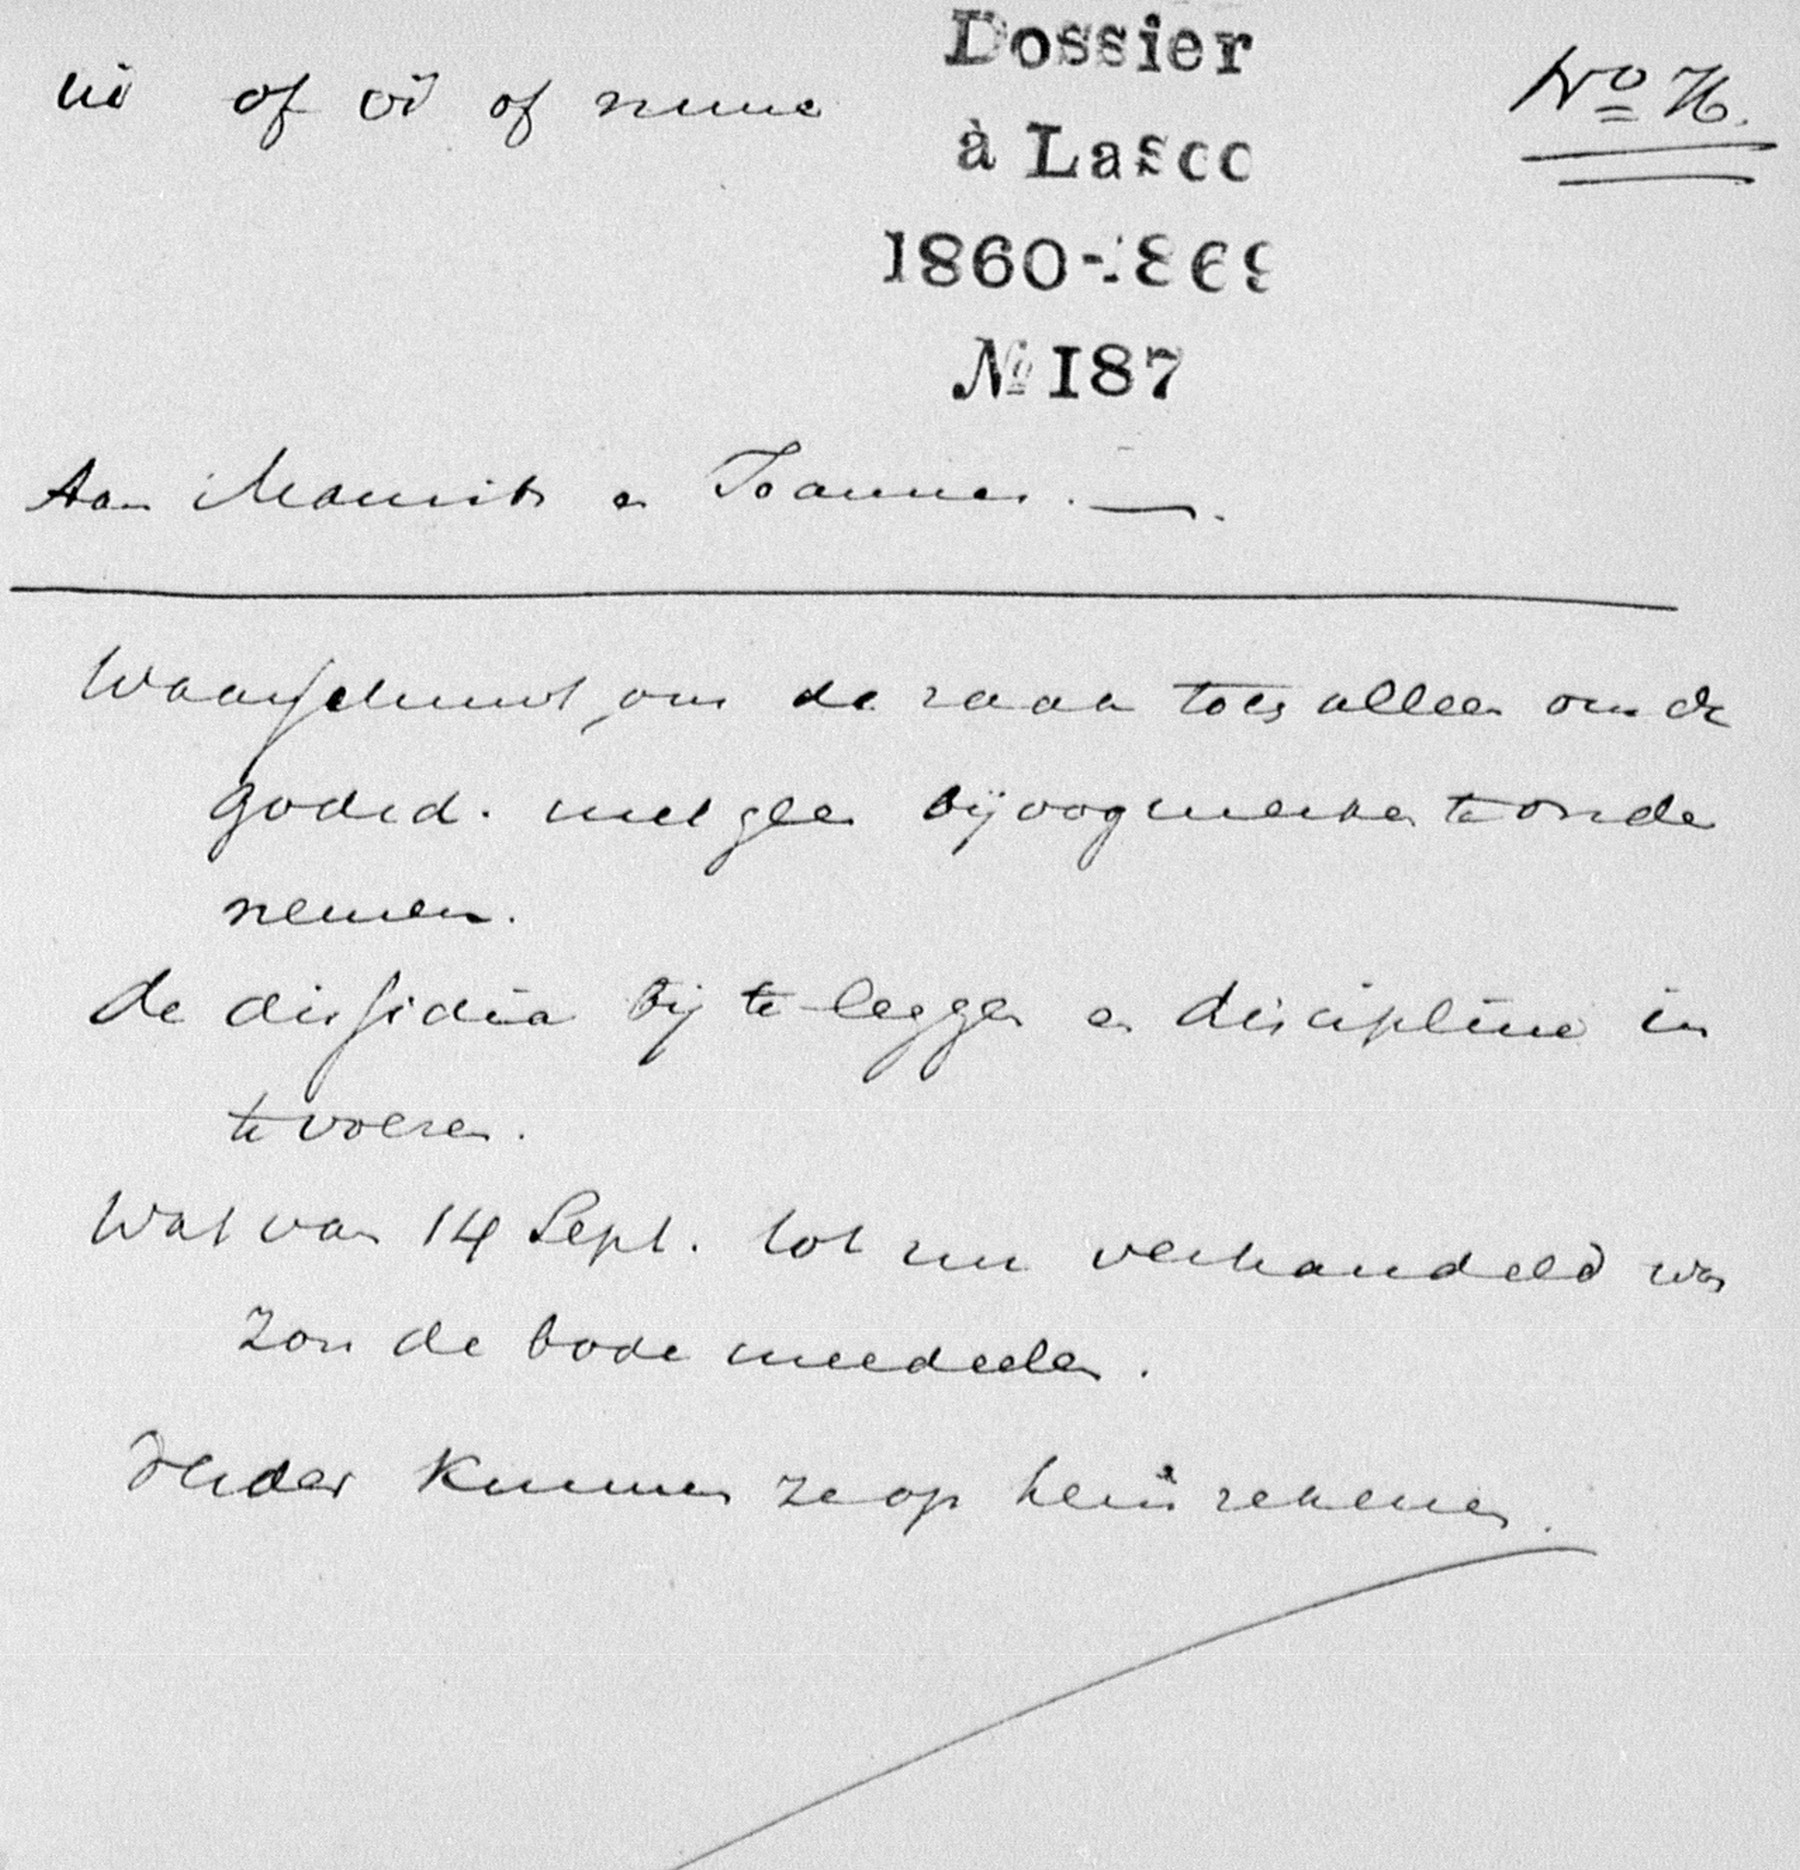 of of nunc
Dossier
à Lasco
1860-1869
No 187
No 76.
Aan Maurits en Joannes. —.
Waarschuwt, om de zaak toch alleen om de
godsd. met geen bijoogmerken te onder
nemen.
de dissidia bij te leggen en discipline in
te voeren.
Wat van 14 Sept. tot nu verhandeld was
zou de bode meedeelen.
Verder kunnen ze op hem rekenen.